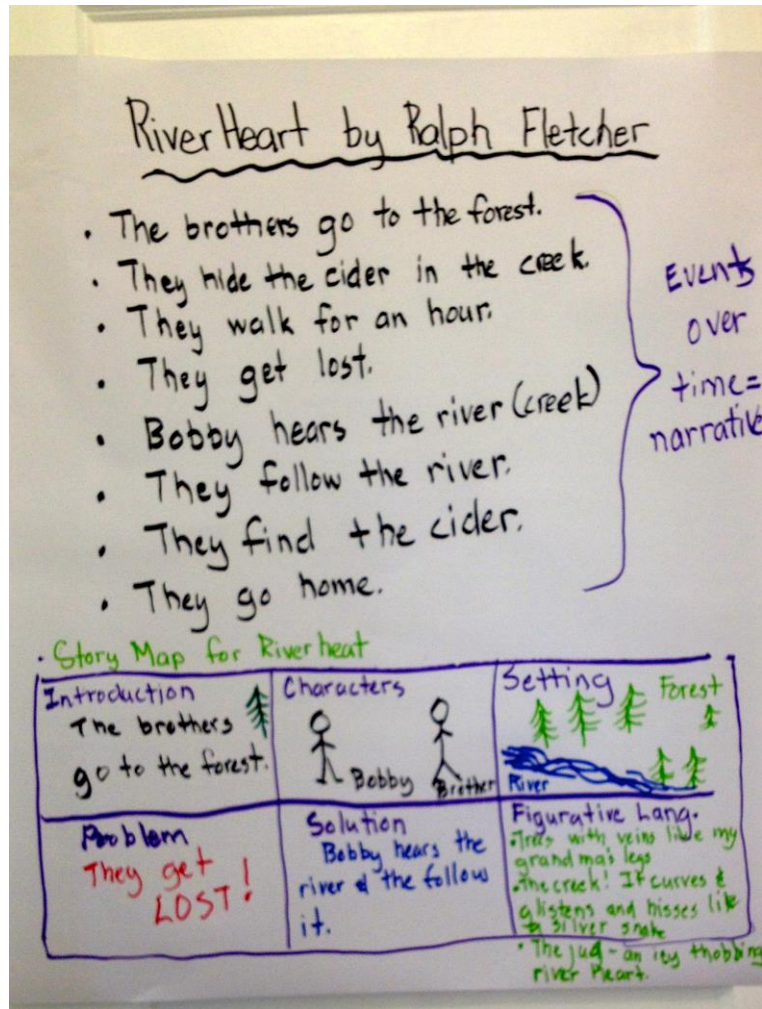 River Heart by Ralph Fletcher
• The brothers go to the forest.
• They hide the cider in the creek.
• They walk for an hour.
• They get lost.
• Bobby hears the river (creek)
• They follow the river.
• They find the cider.
• They go home.
Events
over
time=
narrative
• Story Map for Riverheat
Introduction
The brothers
go to the forest.
Characters
Bobby Brother
Setting
Forest
River
Problem
They get
LOST!
Solution
Bobby hears the
river & the follows
it.
Figurative Lang.
• Trees with veins like my
grandma's legs
• The creek! It curves &
glistens and hisses like
a silver snake
• The jug - an icy thobbing
river heart.